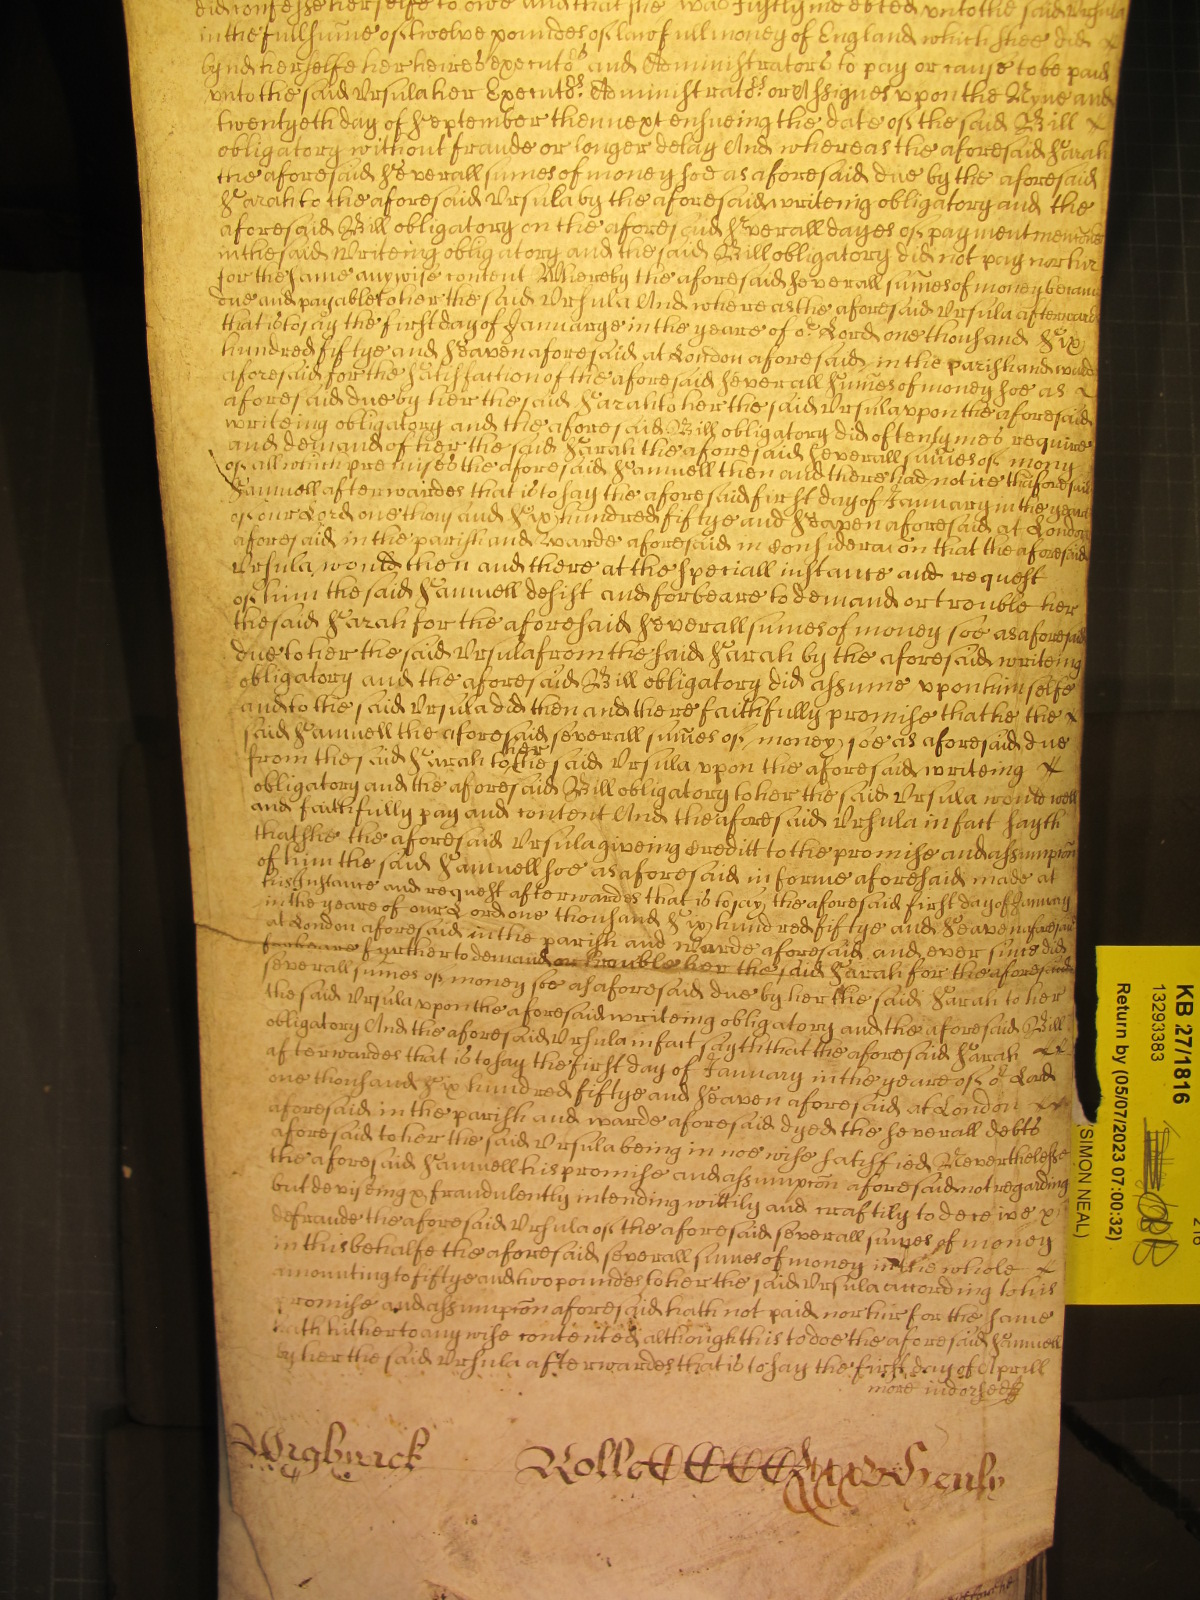 did confesse her selfe to owe and that she was Justly indebted vnto the said Vrsula
in the full sume of twelve poundes of lawfull money of England which shee did
bynd herselfe her heires executors and Administrators to pay or cause to be paid
vnto the said Vrsula her Executors Administrators or Assignes vpon the Nyne and
twentyeth day of September then next ensueing the date of the said Bill
obligatory without fraude or longer delay And whereas the aforesaid Sarah
the aforesaid severall sumes of money soe as aforesaid due by the aforesaid
Sarah to the aforesaid Vrsula by the aforesaid writeing obligatory and the
aforesaid Bill obligatory on the aforesaid severall dayes of payment mencioned
in the said Writeing obligatory and the said Bill obligatory did not pay nor hir
for the same anywise content Whereby the aforesaid severall sumes of money became
due and payable to her the said Vrsula And whereas the aforesaid Vrsula afterwards
that is to say the first day of Januarye in the yeare of or Lord one thousand Six
hundred fiftye and Seaven aforesaid at London aforesaid in the parish and warde
aforesaid for the satisfaction of the aforesaid severall sumes of money soe as
aforesaid due by her the said Sarah to her the said Vrsula vpon the aforesaid
writeing obligatory and the aforesaid Bill obligatory did oftentymes require
and demand of her the said Sarah the aforesaid severall sumes of mony
of all which premises the aforesaid Samuell then and there had notice the aforesaid
Samuell afterwardes that is to say the aforesaid first day of January in the yeare
of our Lord one thousand Six hundred fiftye and Seaven aforesaid at London
aforesaid in the parish and Warde aforesaid in Consideracon that the aforesaid
Vrsula would then and there at the speciall instance and request
of him the said Samuell desist and forbeare to demand or trouble her
the said Sarah for the aforesaid severall sumes of money soe as aforesaid
due to her the said Vrsula from the said Sarah by the aforesaid writeing
obligatory and the aforesaid Bill obligatory did assume vpon himselfe
and to the said Vrsula did then and there faithfully promise that he the
said Samuell the aforesaid severall sumes of money soe as aforesaid due
from the said Sarah to her the said Vrsula vpon the aforesaid writeing
obligatory and the aforesaid Bill obligatory to her the said Vrsula would well
and faithfully pay and content And the aforesaid Vrsula in fact sayth
that she the aforesaid Vrsula giveing Creditt to the promise and assumpcon
of him the said Samuell soe as aforesaid in forme aforesaid made at
his Instance and request afterwardes that is to say the aforesaid first day of January
in the yeare of our Lord one thousand Six hundred fiftye and Seaven aforesaid
at London aforesaid in the parish and Warde aforesaid and ever since did
forbeare further to demand or trouble her the said Sarah for the aforesaid
severall sumes of money soe as aforesaid due by her the said Sarah to her
the said Vrsula vpon the aforesaid writeing obligatory and the aforesaid Bill
obligatory And the aforesaid Vrsula in fact sayth that the aforesaid Sarah
afterwardes that is to say the first day of January in the yeare of or Lord
one thousand Six hundred fiftye and Seaven aforesaid at London
aforesaid in the parish and warde aforesaid dyed the severall debts
aforesaid to her the said Vrsula being in noe wise satisfied Neverthelesse
the aforesaid Samuell his promise and assumpcon aforesaid not regarding
but deviseing & fraudulently intending wittily and craftily to deceive &
defraude the aforesaid Vrsula of the aforesaid severall sumes of money
in this behalfe the aforesaid severall sumes of money in the whole
amounting to fiftye and two poundes to her the said Vrsula according to his
promise and assumpcon aforesaid hath not paid nor hir for the same
hath hitherto any wise contented although this to doe the aforesaid Samuell
by her the said Vrsula afterwardes that is to say the first day of Aprill
more indorsed
Wigbuick
Rolle CCCCxxxv Henly
KB 27/1816
13293383
Return by (05/07/2023 07:00:32)
(SIMON NEAL)